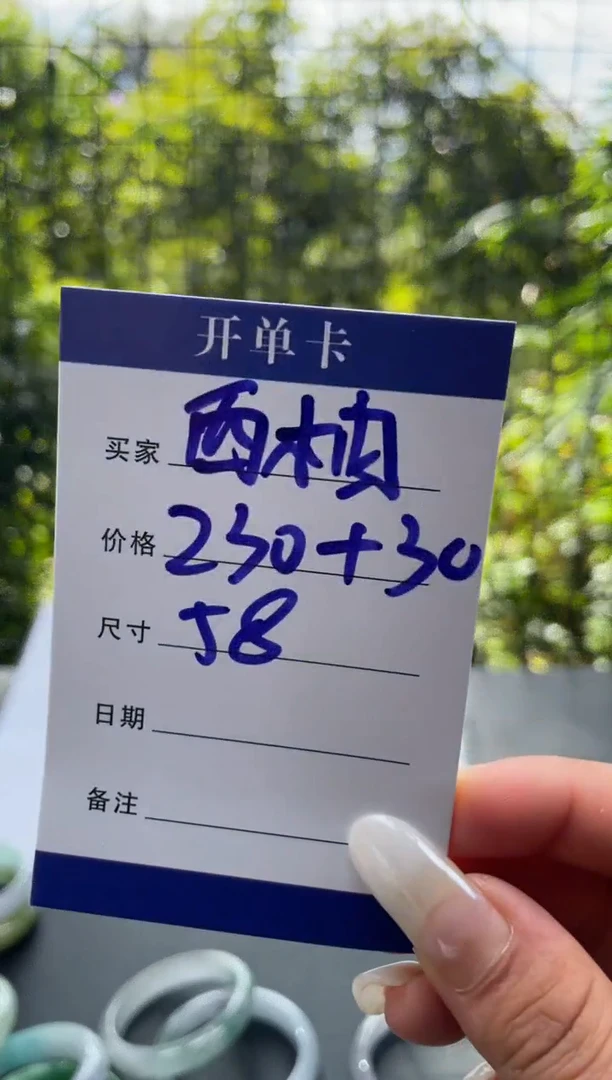 开单卡
买家 西楠
价格 230+30
尺寸 58
日期
备注